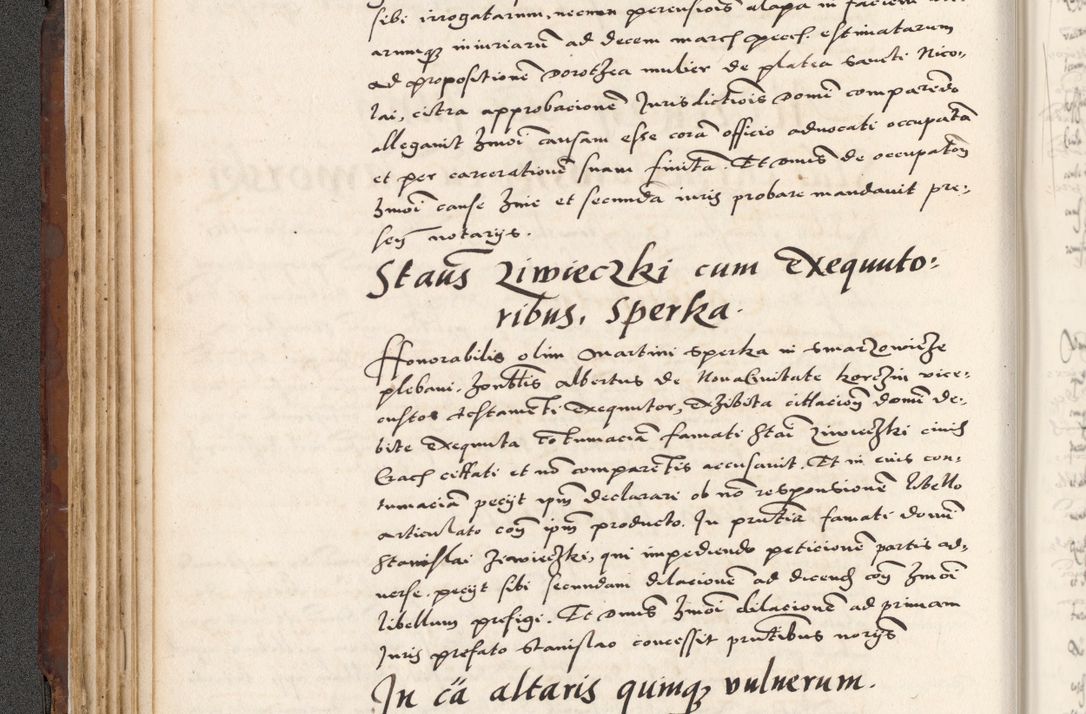 sibi irrogatarum, necnon percusiois alapa in faciem
arumq iniuriarũ ad decem march pecch. estimatarum
ad propositionẽ Dorothea mulier de platea sancti Nico-
lai, citra approbacionẽ Jurisdictiois domĩ comparẽdo
allegavit Zmoĩ causam esse corã officio advocati occupatã
et per carcerationẽ suam finitã. Et dnus de occupatõe
Zmoĩ cause Zmie et secunda iuris probare mandavit pre-
sen notarijs.
Staũs Ziwieczki cum Exequuto-
ribus, Sperka.
Honorabilis olim Martini Sperka in Smarzowicze
plebani. Honblis Albertus de Nova Civitate Korczin vice-
custos testamenti exequutor, exhibita cittacioñ domĩ de-
bite exequuta cotumaciã famati Staĩ Ziwieczki civis
Crach cittati et nõ comparẽtis accusavit. Et in eius con-
tumaciã pecijt ipm declarari ob nõ responsionẽ libello
articulato coñ ipm producto. In pñtia famati domĩ
Stanislai Ziewieczki, qui impediendo peticionẽ partis ad-
verse. pecijt sibi secundam dilacionẽ ad dicend coñ Zmoĩ
libellum prefigi. Et dnus Zmoĩ dilacionẽ ad primam
Juris prefato Stanislao concessit pñtibus norijs
In cã altaris quinq vulnerum.